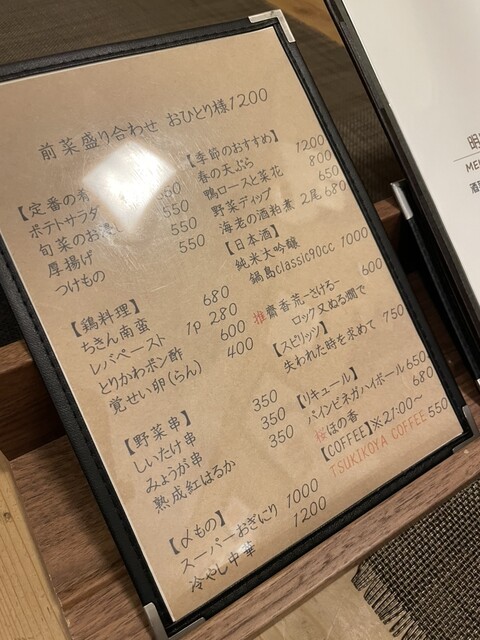 前菜盛り合わせ おひとり様1200
【定番の肴】
ポテトサラダ 550
旬菜のお 550
厚揚げ 550
つけもの
【鶏料理】
ちきん南蛮 680
レバペースト 1p 280
とりかわポン酢 600
覚せい卵(らん) 400
【野菜串】
しいたけ串 350
みょうが串 350
熟成紅はるか 350
【〆もの】
スーパーおぎにり 1000
冷やし中華 1200
【季節のおすすめ】
春の天ぷら 1200
鴨ロースと菜花 800
野菜ディップ 650
海老の酒粕煮 2尾 680
【日本酒】
純米大吟醸
鍋島classic90cc 1000
齋香荒ごさけるー
ロック又ぬる燗で 600
【スピリッツ】
失われた時を求めて 750
【リキュール】
パインビネガハイボール 650
桜ほの香 680
【COFFEE】※21:00〜
TSUKIKOYA COFFEE 550
明
ME
酒